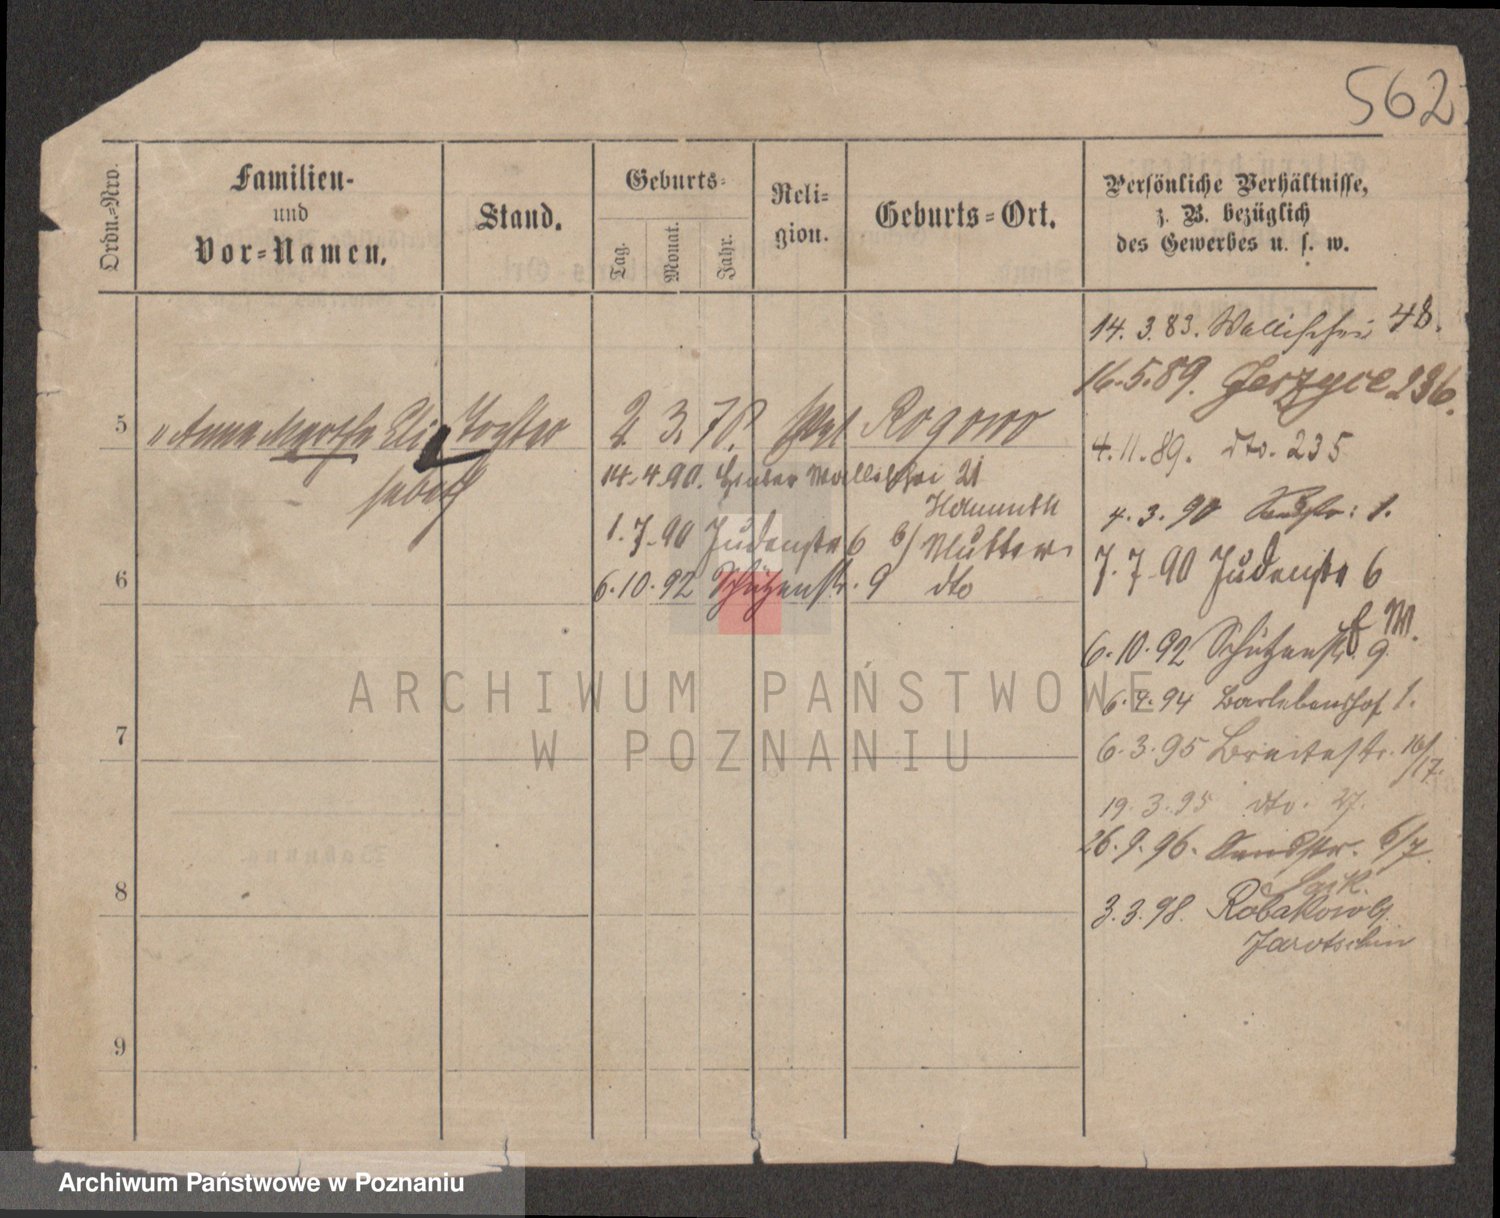 562
Ordn.-Nro.
Familien-
und
Vor-Namen.
Stand.
Geburts-
Tag.
Monat.
Jahr.
Reli-
gion.
Geburts-Ort.
Persönliche Verhältnisse,
z. B. bezüglich
des Gewerbes u. s. w.
14. 3. 83. Wallischei 48.
16. 5. 89. Jerzyce 236.
5 " Anna Martha Eli Tochter 2. 3. 78. Rogowo
sabeth
4. 11. 89. dto. 235
14. 4. 90. Hinter Wallischei 21
4. 3. 90 Sandstr: 1.
1. 7. 90 Judenstr 6 b/ Mutter
7. 7. 90 Judenstr 6
6 6. 10. 92 Schützenstr. 9 dto
6. 10. 92 Schützenstr. 9
6. 4. 94 Barlebenshof 1.
7 6. 3. 95 Breitestr. 16/17.
19. 3. 95 dto. 27.
26. 9. 96. Sandstr. 6/7
8 3. 3. 98.
Jarotschin
9
ARCHIWUM PAŃSTWOWE
W POZNANIU
Archiwum Państwowe w Poznaniu